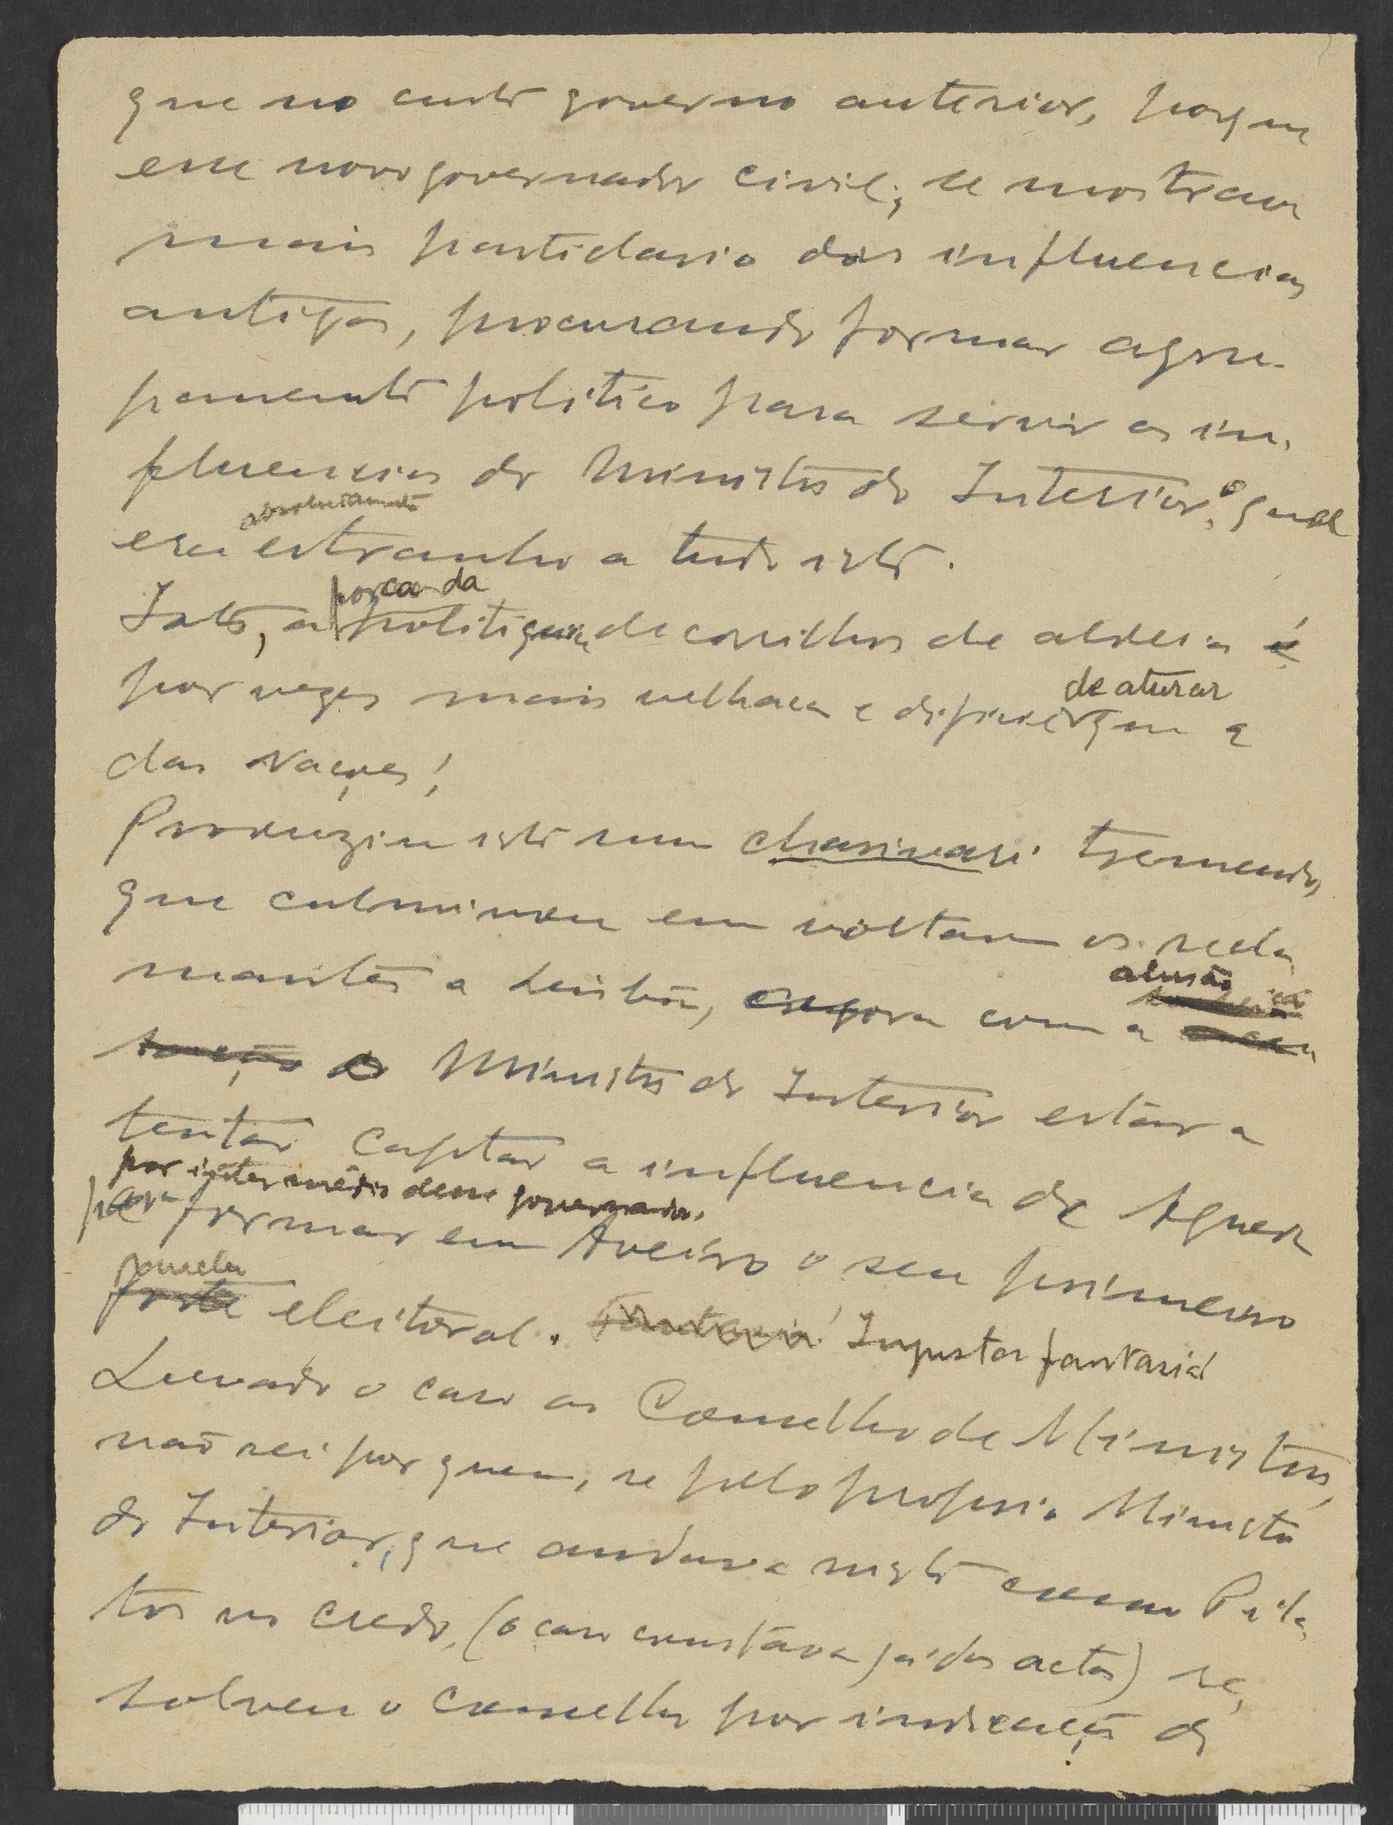 que no curto governo anterior, porque
esse novo governador civil, se mostrava
mais partidario das influencias
antigas, procurando formar agru-
pamento politico para servir as in-
fluencias do Ministro do Interior, o qual
absolutamente
era estranho a tudo isto.
porca da
Isto, a politiquice de corrilhos de aldeia é
de aturar
por vezes mais velhaca e dificil que a
das Nações!
Produziu isto um charivari tremendo,
que culminou em voltarem os recla-
alusão
mantes a Lisboa, agora com a
o Ministro do Interior estar a
tentar captar a influencia de Agueda
por intermédio desse governador,
para formar em Aveiro o seu primeiro
panela
forte eleitoral. Fantasia! Injusta fantasia!
Levado o caso ao Conselho de Ministros,
não sei por quem, se pelo proprio Ministro
do Interior, que andava nisto como Pila-
tos no credo, (o caso constava já das actas) re-
solveu o conselho por indicação do